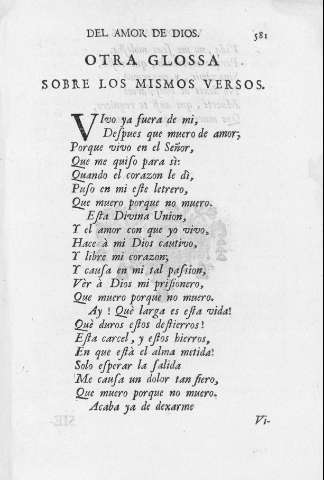 DEL AMOR DE DIOS. 581
OTRA GLOSSA
SOBRE LOS MISMOS VERSOS.
VIvo ya fuera de mi,
Despues que muero de amor;
Porque vivo en el Señor,
Que me quiſo para sì:
Quando el corazon le dì,
Puſo en mi eſte letrero,
Que muero porque no muero.
Eſta Divina Union,
Y el amor con que yo vivo,
Hace à mi Dios cautivo,
Y libre mi corazon;
Y cauſa en mi tal paſsion,
Vèr à Dios mi priſionero,
Que muero porque no muero.
Ay! Què larga es eſta vida!
Què duros eſtos deſtierros!
Eſta carcel, y eſtos hierros,
En que eſtà el alma metida!
Solo eſperar la ſalida
Me cauſa un dolor tan fiero,
Que muero porque no muero.
Acaba ya de dexarme
Vi-